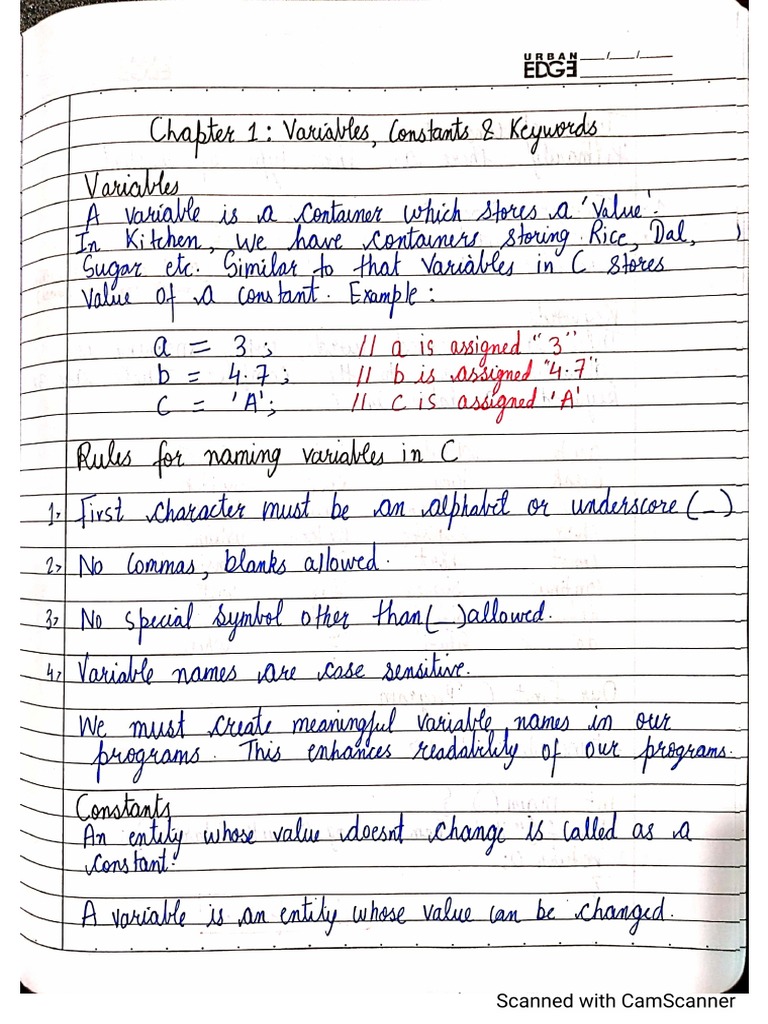 URBAN
EDGE __/__/__
Chapter 1 : Variables, Constants & Keywords
Variables
A variable is a container which stores a 'value'.
In Kitchen, we have containers storing Rice, Dal,
Sugar etc. Similar to that variables in C stores
value of a constant. Example :
a = 3 ; // a is assigned "3"
b = 4.7 ; // b is assigned "4.7"
c = 'A'; // c is assigned 'A'
Rules for naming variables in C
1> First character must be an alphabet or underscore (_)
2> No commas, blanks allowed.
3> No special symbol other than (_) allowed.
4> Variable names are case sensitive.
We must create meaningful variable names in our
programs. This enhances readability of our programs.
Constants
An entity whose value doesnt change is called as a
constant.
A variable is an entity whose value can be changed.
Scanned with CamScanner